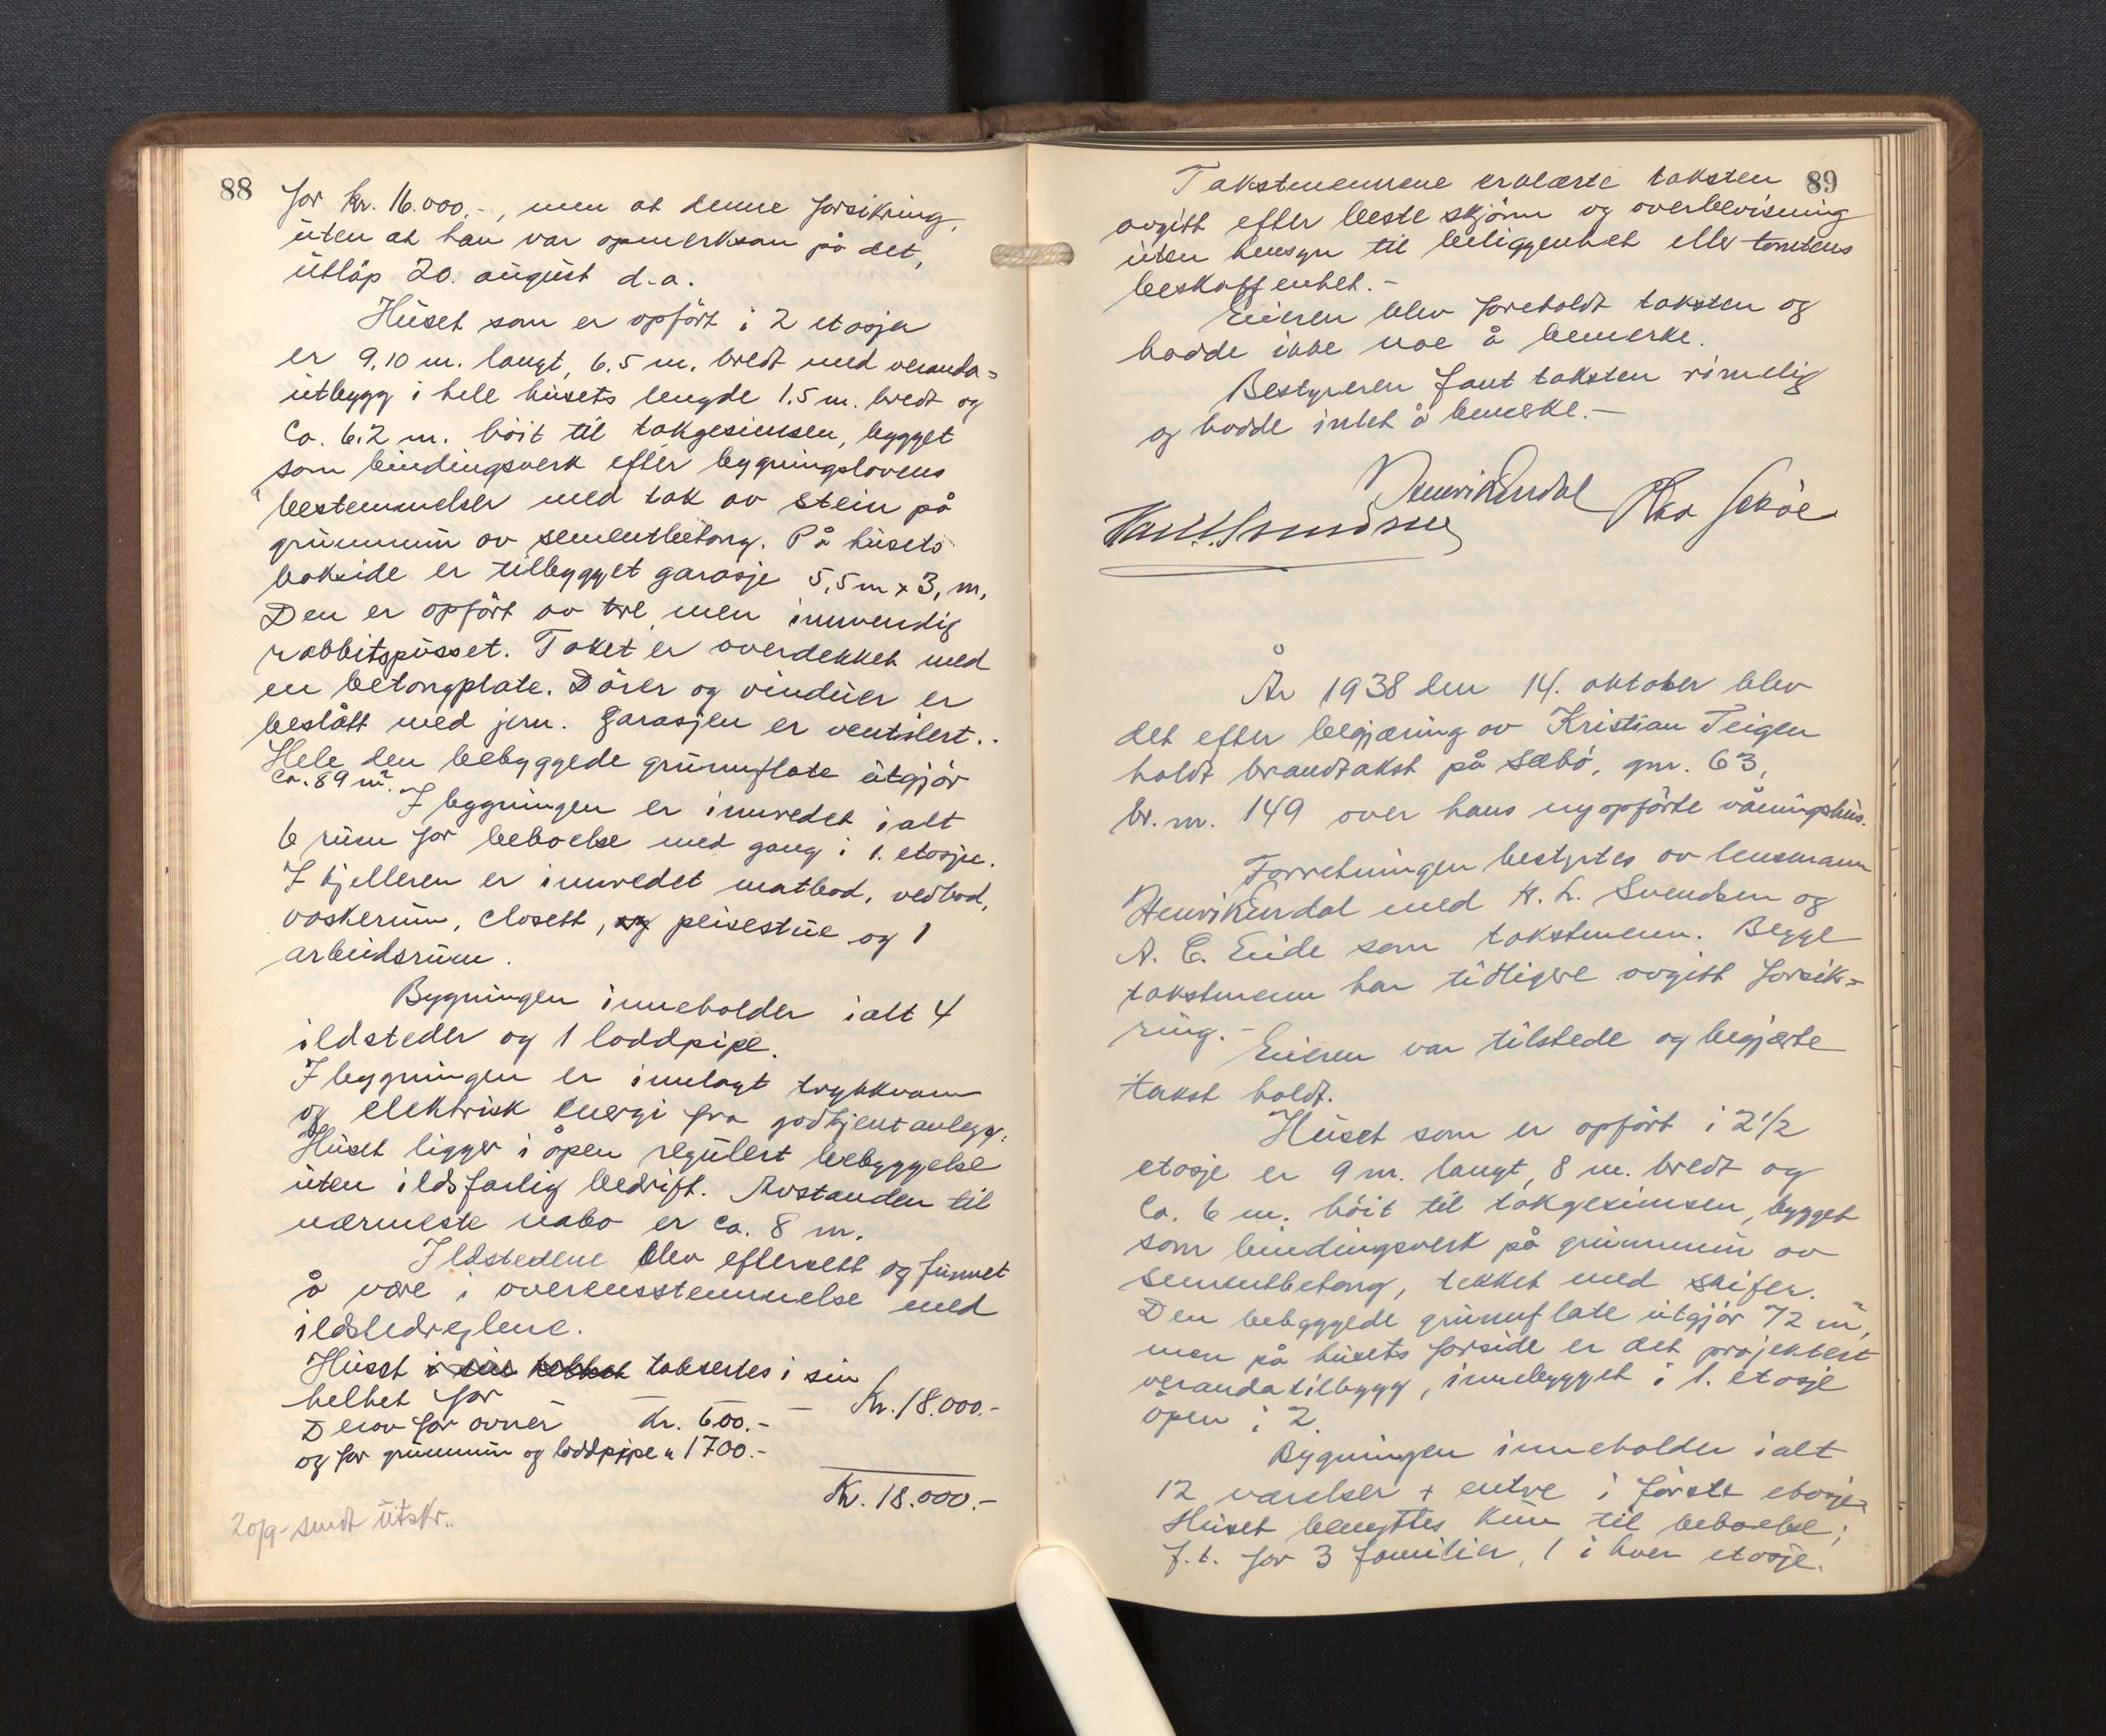 88
for kr. 16.000.-, men at denne forsikring,
uten at han var opmerksom på det,
utløp 20. august d.a.
Huset som er opført i 2 etasjer
er 9,10 m. langt, 6.5 m. bredt med veranda=
utbygg i hele husets lengde 1.5 m. bredt og
ca. 6.2 m. høit til takgesimsen, bygget
som bindingsverk efter bygningslovens
bestemmelser med tak av stein på
grunnmur av sementbetong. På husets
bakside er tilbygget garasje 5,5 m x 3, m.
Den er opført av tre, men innvendig
rabbitspusset. Taket er overdekket med
en betongplate. Dører og vinduer er
beslått med jern. Garasjen er ventilert..
Hele den bebyggede grunnflate utgjør
ca. 89 m².
I bygningen er innredet ialt
6 rum for beboelse med gang i 1. etasje.
I kjelleren er innredet matbod, vedbod,
vaskerum, closett, og peisestue og 1
arbeidsrum.
Bygningen inneholder ialt 4
ildsteder og 1 loddpipe.
I bygningen er innlagt trykkvann
og elektrisk energi fra godkjent anlegg.
Huset ligger i åpen regulert bebyggelse
uten ildsfarlig bedrift. Avstanden til
nærmeste nabo er ca. 8 m.
Ildstedene blev eftersett og funnet
å være i overensstemmelse med
ildstedreglene.
Huset i sin helhet takseres i sin
helhet for — — Kr. 18.000.-
Derav for ovner kr. 600.-
og for grunnmur og loddpipe " 1700.-
Kr. 18.000.-
20/9- sendt utskr..
89
Takstmennene erklærte taksten
avgitt efter beste skjønn og overbevisning
uten hensyn til beliggenhet eller tomtens
beskaffenhet.-
Eieren blev foreholdt taksten og
hadde ikke noe å bemerke.
Bestyreren fant taksten rimelig
og hadde intet å bemerke.-
Henrik Endal
År 1938 den 14. oktober blev
det efter begjæring av Kristian Teigen
holdt brandtakst på Sæbø, gnr. 63,
br. nr. 149 over hans nyopførte våningshus.
Forretningen bestyrtes av lensmann
Henrik Endal med H. L. Svendsen og
A. C. Eide som takstmenn. Begge
takstmenn har tidligere avgitt forsik=
ring.-
Eieren var tilstede og begjærte
takst holdt.
Huset som er opført i 2 1/2
etasje er 9 m. langt, 8 m. bredt og
ca. 6 m. høit til takgesimsen, bygget
som bindingsverk på grunnmur av
sementbetong, tekket med skifer.
Den bebyggede grunnflate utgjør 72 m²,
men på husets forside er det projektert
verandatilbygg, innebygget i 1. etasje
åpen i 2.
Bygningen inneholder ialt
12 værelser + entre i første etasje.
Huset benyttes kun til beboelse;
f.t. for 3 familier, 1 i hver etasje.